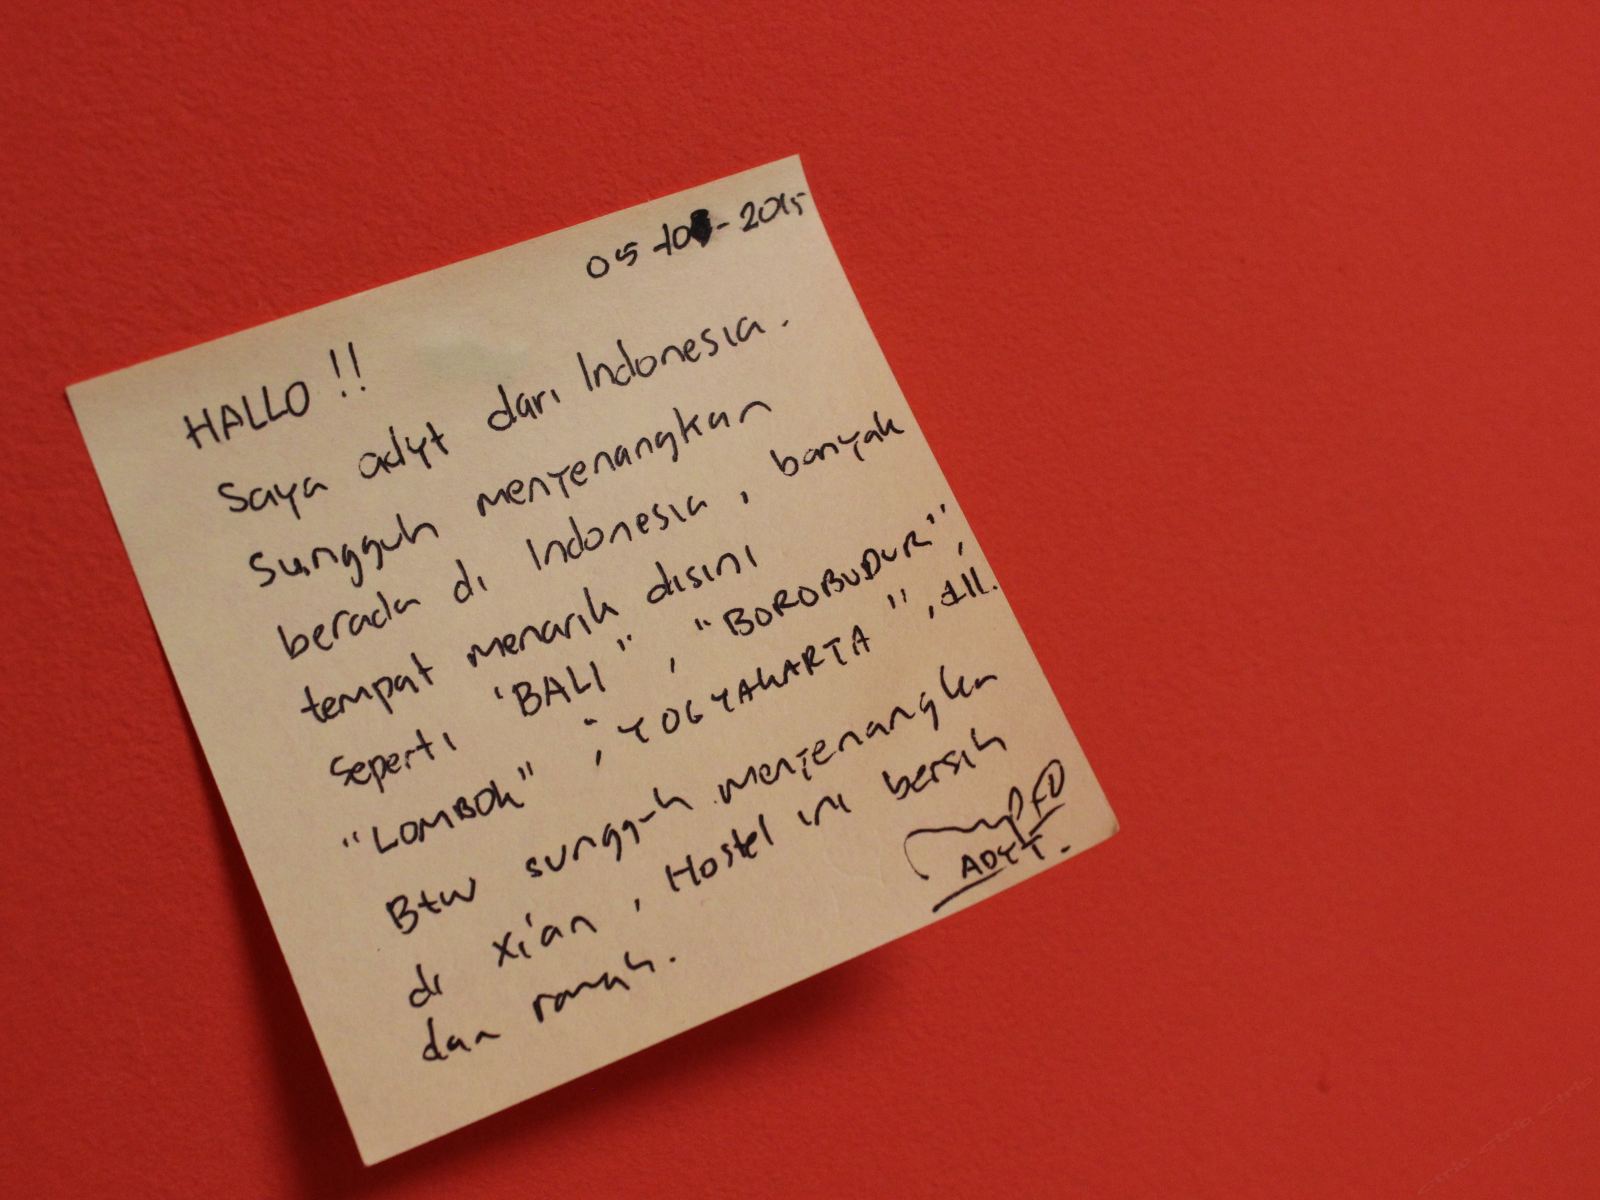 05-10-2015
HALLO !!
Saya adyt dari Indonesia.
Sungguh menyenangkan
berada di Indonesia, banyak
tempat menarik disini
seperti "BALI", "BOROBUDUR",
"LOMBOK", "YOGYAKARTA", dll.
Btw sungguh menyenangkan
di xi'an, Hostel ini bersih
dan ramah.
ADYT.